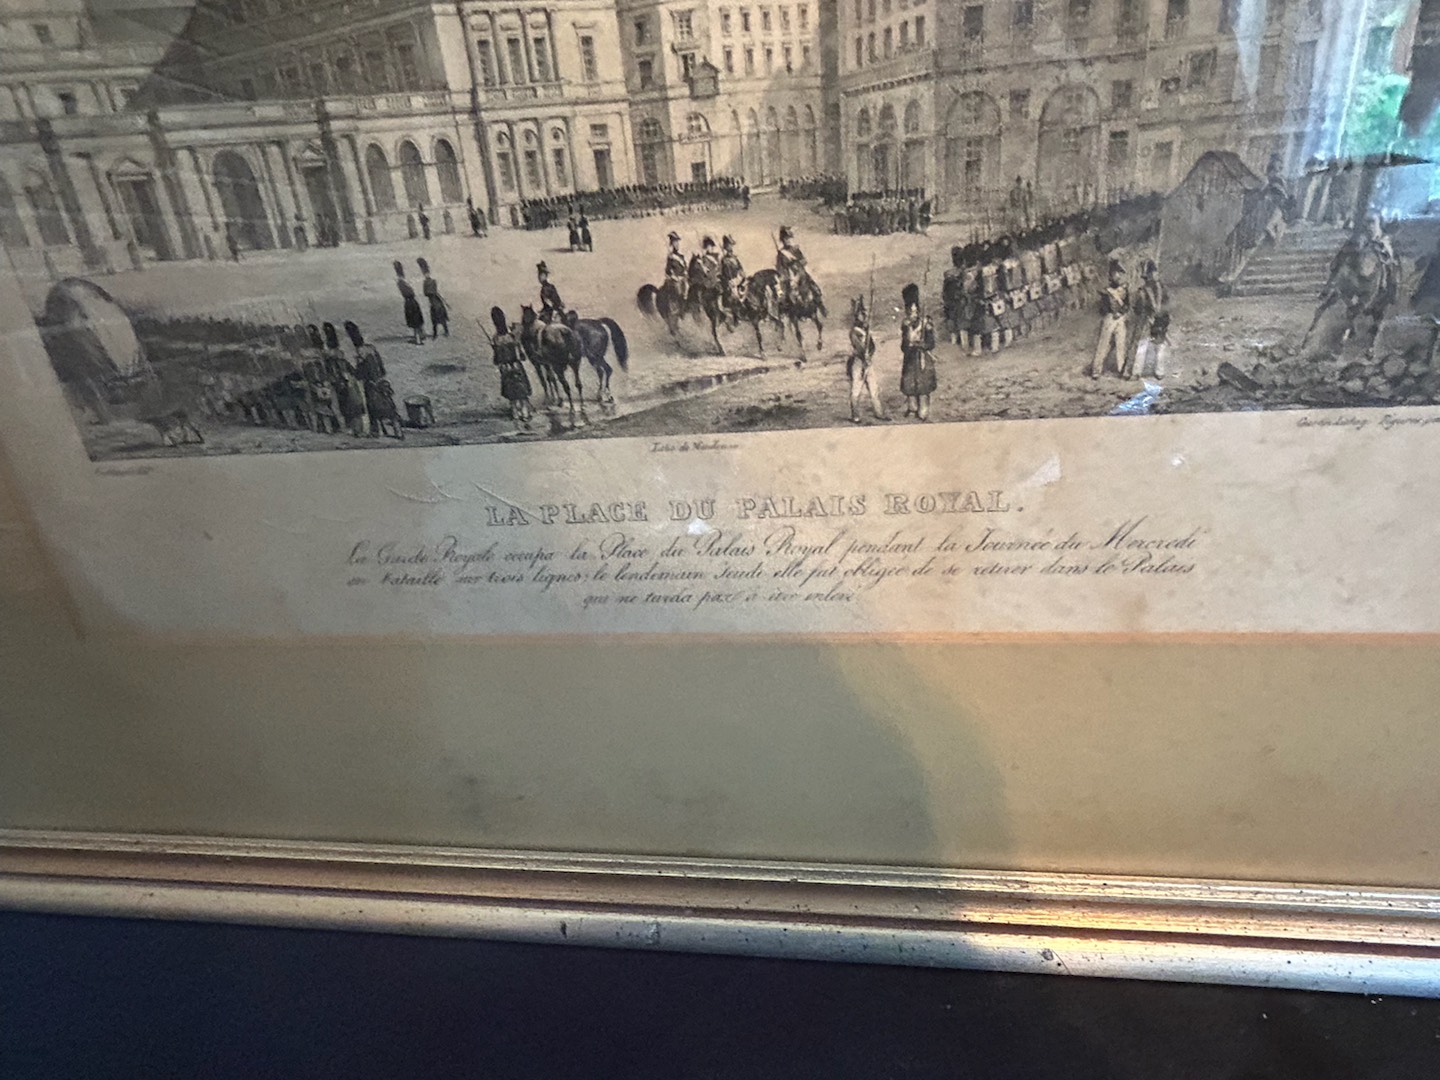 Lith. de
LA PLACE DU PALAIS ROYAL.
La Garde Royale occupa la Place du Palais Royal pendant la Journée du Mercredi
en bataille sur trois lignes; le lendemain Jeudi elle fut obligée de se retirer dans le Palais
qui ne tarda pas à être enlevé.